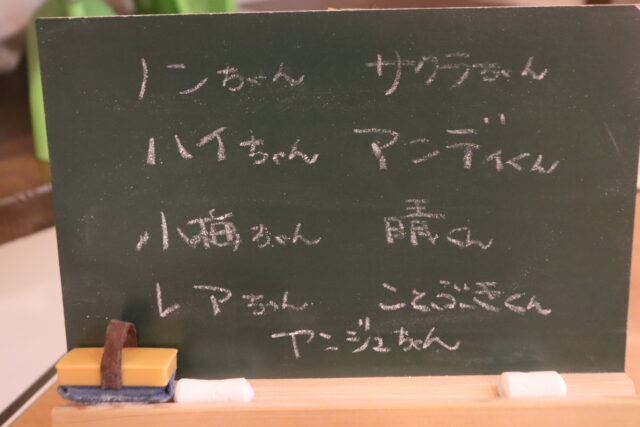 ノンちゃん サクラちゃん
ハイちゃん アンディくん
小梅ちゃん 晴くん
レアちゃん ことぶきくん
アンジュちゃん